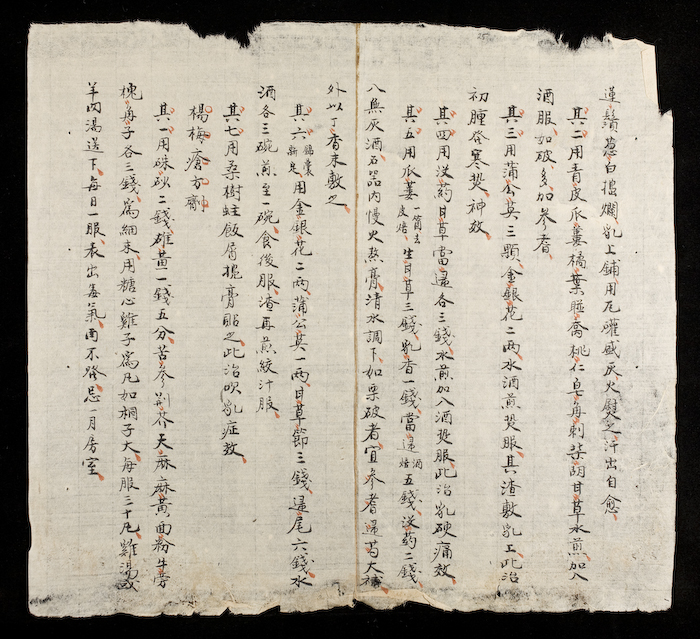 連鬚葱白搗爛乳上鋪用瓦礶盛灰火熨之汗出自愈
其二用青皮瓜蔞橘葉連喬桃仁皂角刺柴胡甘草水煎加入
酒服如破多加參耆
其三用蒲公英三顆金銀花二两水酒煎熨服其渣敷乳上此治
初腫發寒熨神效
其四用没葯甘草當归各三錢水煎加入酒熨服此治乳硬痛效
其五用瓜蔞一箇去皮焙生甘草三錢乳香一錢當归酒焙五錢没葯二錢
八無灰酒石器内慢火熬膏清水調下如栗破者宜參耆歸芍大補
外以丁香末敷之
其六用金銀花二两蒲公英一两甘草節三錢歸尾六錢水
酒各三碗煎至一碗食後服渣再煎絞汁服
其七用桑樹蛀飯屑搗膏貼之此治吹乳症效
楊梅瘡方劑
其一用硃砂二錢雄黃一錢五分苦參荆芥天麻麻黃面粉牛旁
槐角子各三錢爲細末用糖心雞子爲凡如桐子大每服三十凡雞湯或
羊肉湯送下每日一服表出毒氣而不發忌一月房室